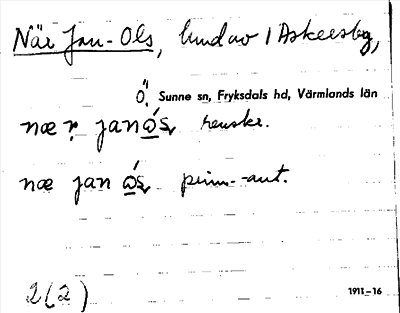 När Jan-Ols, lmd av 1 Askersby,
Ö. Sunne sn, Fryksdals hd, Värmlands län
næ r̩ jan o̲s̩ renskr.
næ jan o̲s̩ prim.-ant.
2(2) 1911–16